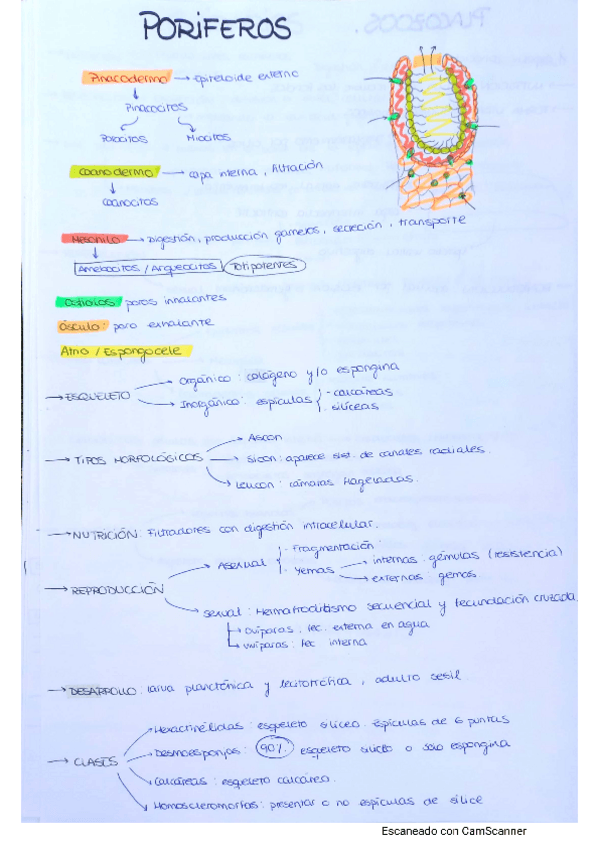 PORIFEROS
Pinacodermo → epiteloide externo
Pinacocitos
Porocitos Miocitos
coanodermo → capa interna, filtración
coanocitos
Mesohilo → Digestión, producción gametos, secreción, transporte
Amebocitos / Arqueocitos Totipotentes
Ostiolos: poros inhalantes
Ósculo: poro exhalante
Atrio / Espongocele
→ ESQUELETO
→ Orgánico: colágeno y/o espongina
→ Inorgánico: espículas { - calcáreas
- silíceas
→ TIPOS MORFOLÓGICOS
→ Ascon
→ Sicon: aparece sist. de canales radiales.
→ Leucon: cámaras flageladas.
→ NUTRICIÓN: Filtradores con digestión intracelular.
→ REPRODUCCIÓN
→ Asexual { · Fragmentación
· Yemas → internas: gémulas (resistencia)
→ externas: gemas.
→ sexual: Hermafroditismo secuencial y fecundación cruzada
→ ovíparas: fec. externa en agua
→ vivíparas: fec interna
→ DESARROLLO: larva planctónica y lecitotrófica, adulto sesil.
→ CLASES
→ Hexactinélidas: esqueleto silíceo. Espículas de 6 puntas
→ Desmoesponjas: 90% esqueleto silíceo o solo espongina
→ Calcáreas: esqueleto calcáreo.
→ Homoscleromorfas: presentar o no espículas de sílice
Escaneado con CamScanner